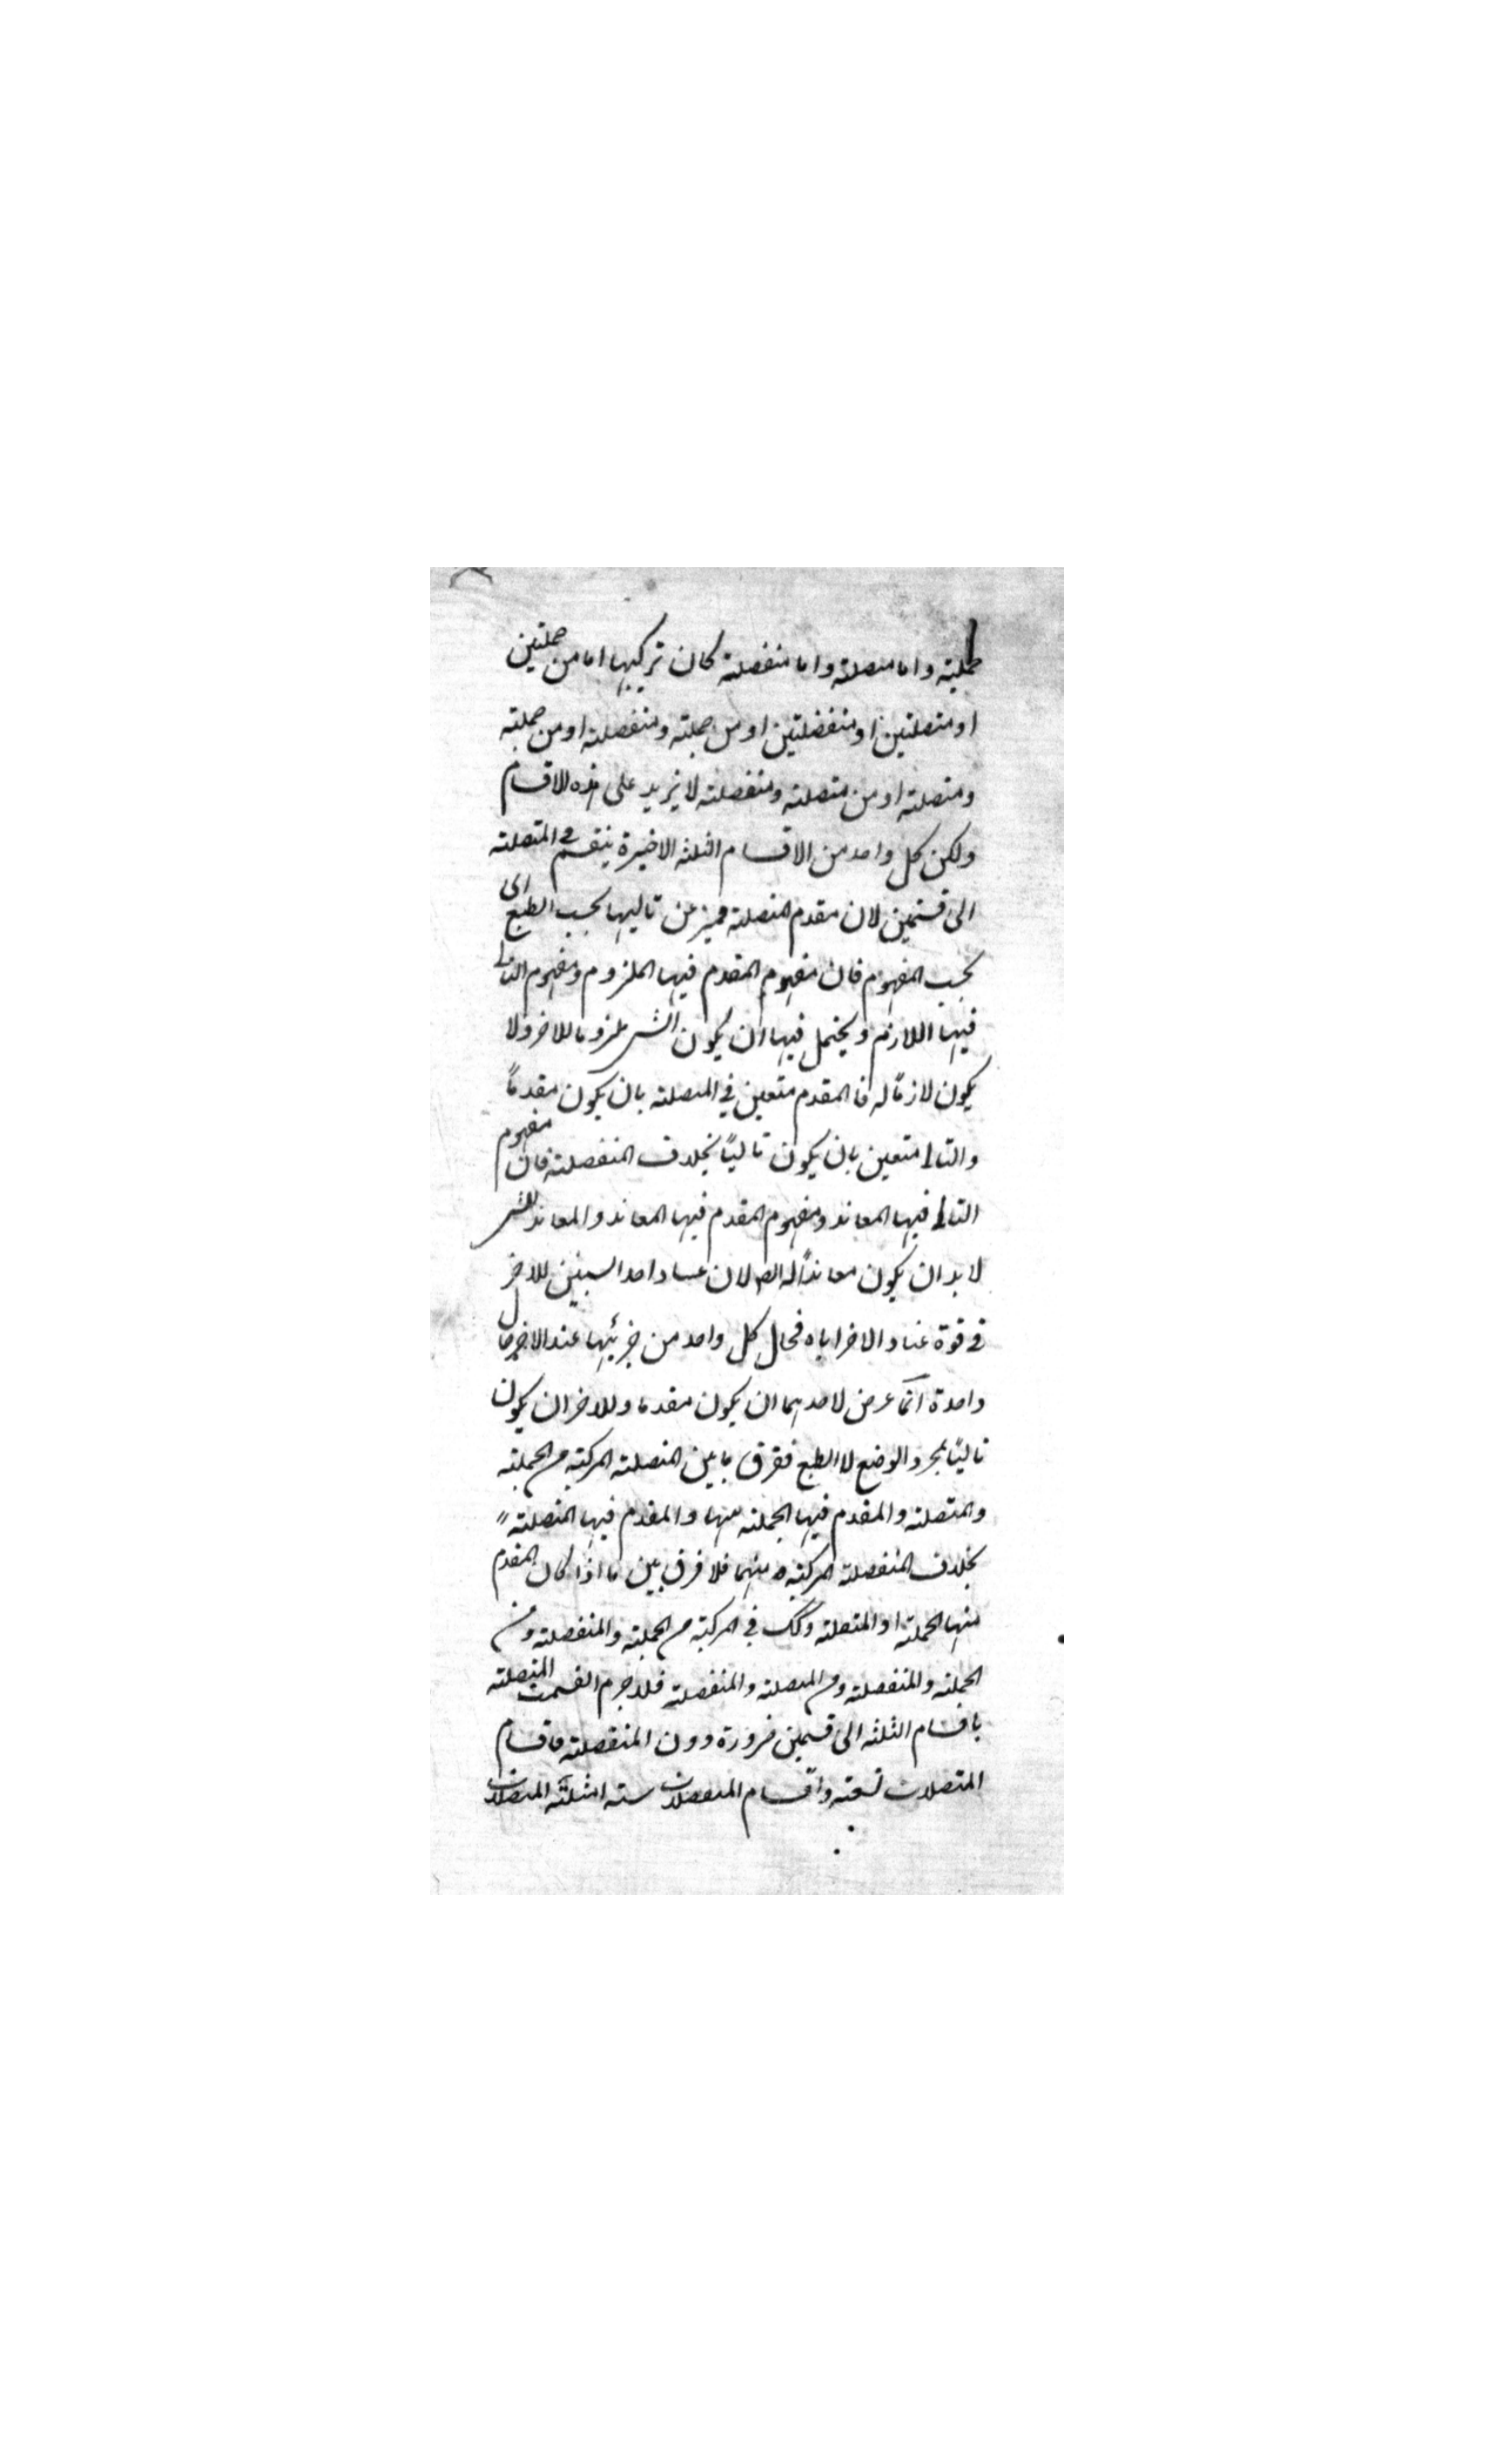 حملية واما متصلة واما منفصلة كان تركيبها اما من حمليتين
او متصلتين او منفصلتين او من حملية ومنفصلة او من حملية
ومتصلة او من متصلة ومنفصلة لا يزيد على هذه الاقسام
ولكن كل واحد من الاقسام الثلثه الاخيرة ينقسم في المتصلة
الى قسمين لان مقدم المتصلة مميز عن تاليها بحسب الطبع اى
بحسب المفهوم فان مفهوم المقدم فيها الملزوم ومفهوم التالى
فيها اللازم ويحتمل فيها ان يكون الشى ملزوما للاخر ولا
يكون لازمًا له فالمقدم متعين في المتصلة بان يكون مقدمًا
والتالى متعين بان يكون تاليًا بخلاف المنفصلة فان مفهوم
التالى فيها المعاند ومفهوم المقدم فيها المعاند والمعاند للشى
لابد ان يكون معاندًا له ايضا لان عناد احد الشيئين للاخر
في قوة عناد الاخر اياه فحال كل واحد من جزئيها عند الاخر حال
واحدة انما عرض لاحدهما ان يكون مقدما وللاخر ان يكون
تاليًا بمجرد الوضع لا الطبع ففرق ما بين المتصلة المركبة من الحملية
والمتصلة والمقدم فيها الحملية منها والمقدم فيها المتصلة
بخلاف المنفصلة المركبة منهما فلا فرق بين ما اذا كان المقدم
منها الحملية او المتصلة وكك في المركبة من الحملية والمنفصلة ومن
الحملية والمنفصلة ومن المتصلة والمنفصلة فلا جرم انقسمت المتصلة
باقسام الثلثه الى قسمين ضرورة دون المنفصلة فاقسام
المتصلات تسعة واقسام المنفصلات ستة امثلة المتصلات